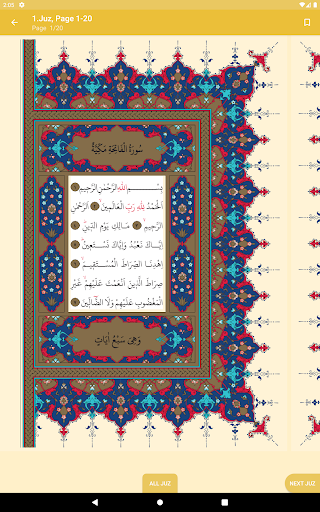 3:03
1.Juz, Page 1-20
Page 1/20
سُورَةُ الْفَاتِحَةِ مَكِّيَّةٌ
بِسْمِ اللّٰهِ الرَّحْمٰنِ الرَّحِيمِ
اَلْحَمْدُ لِلّٰهِ رَبِّ الْعَالَمِينَ اَلرَّحْمٰنِ
الرَّحِيمِ مَالِكِ يَوْمِ الدِّينِ
اِيَّاكَ نَعْبُدُ وَاِيَّاكَ نَسْتَعِينُ
اِهْدِنَا الصِّرَاطَ الْمُسْتَقِيمَ
صِرَاطَ الَّذِينَ اَنْعَمْتَ عَلَيْهِمْ غَيْرِ
الْمَغْضُوبِ عَلَيْهِمْ وَلَا الضَّالِّينَ
وَهِيَ سَبْعُ اٰيَاتٍ
ALL JUZ
NEXT JUZ